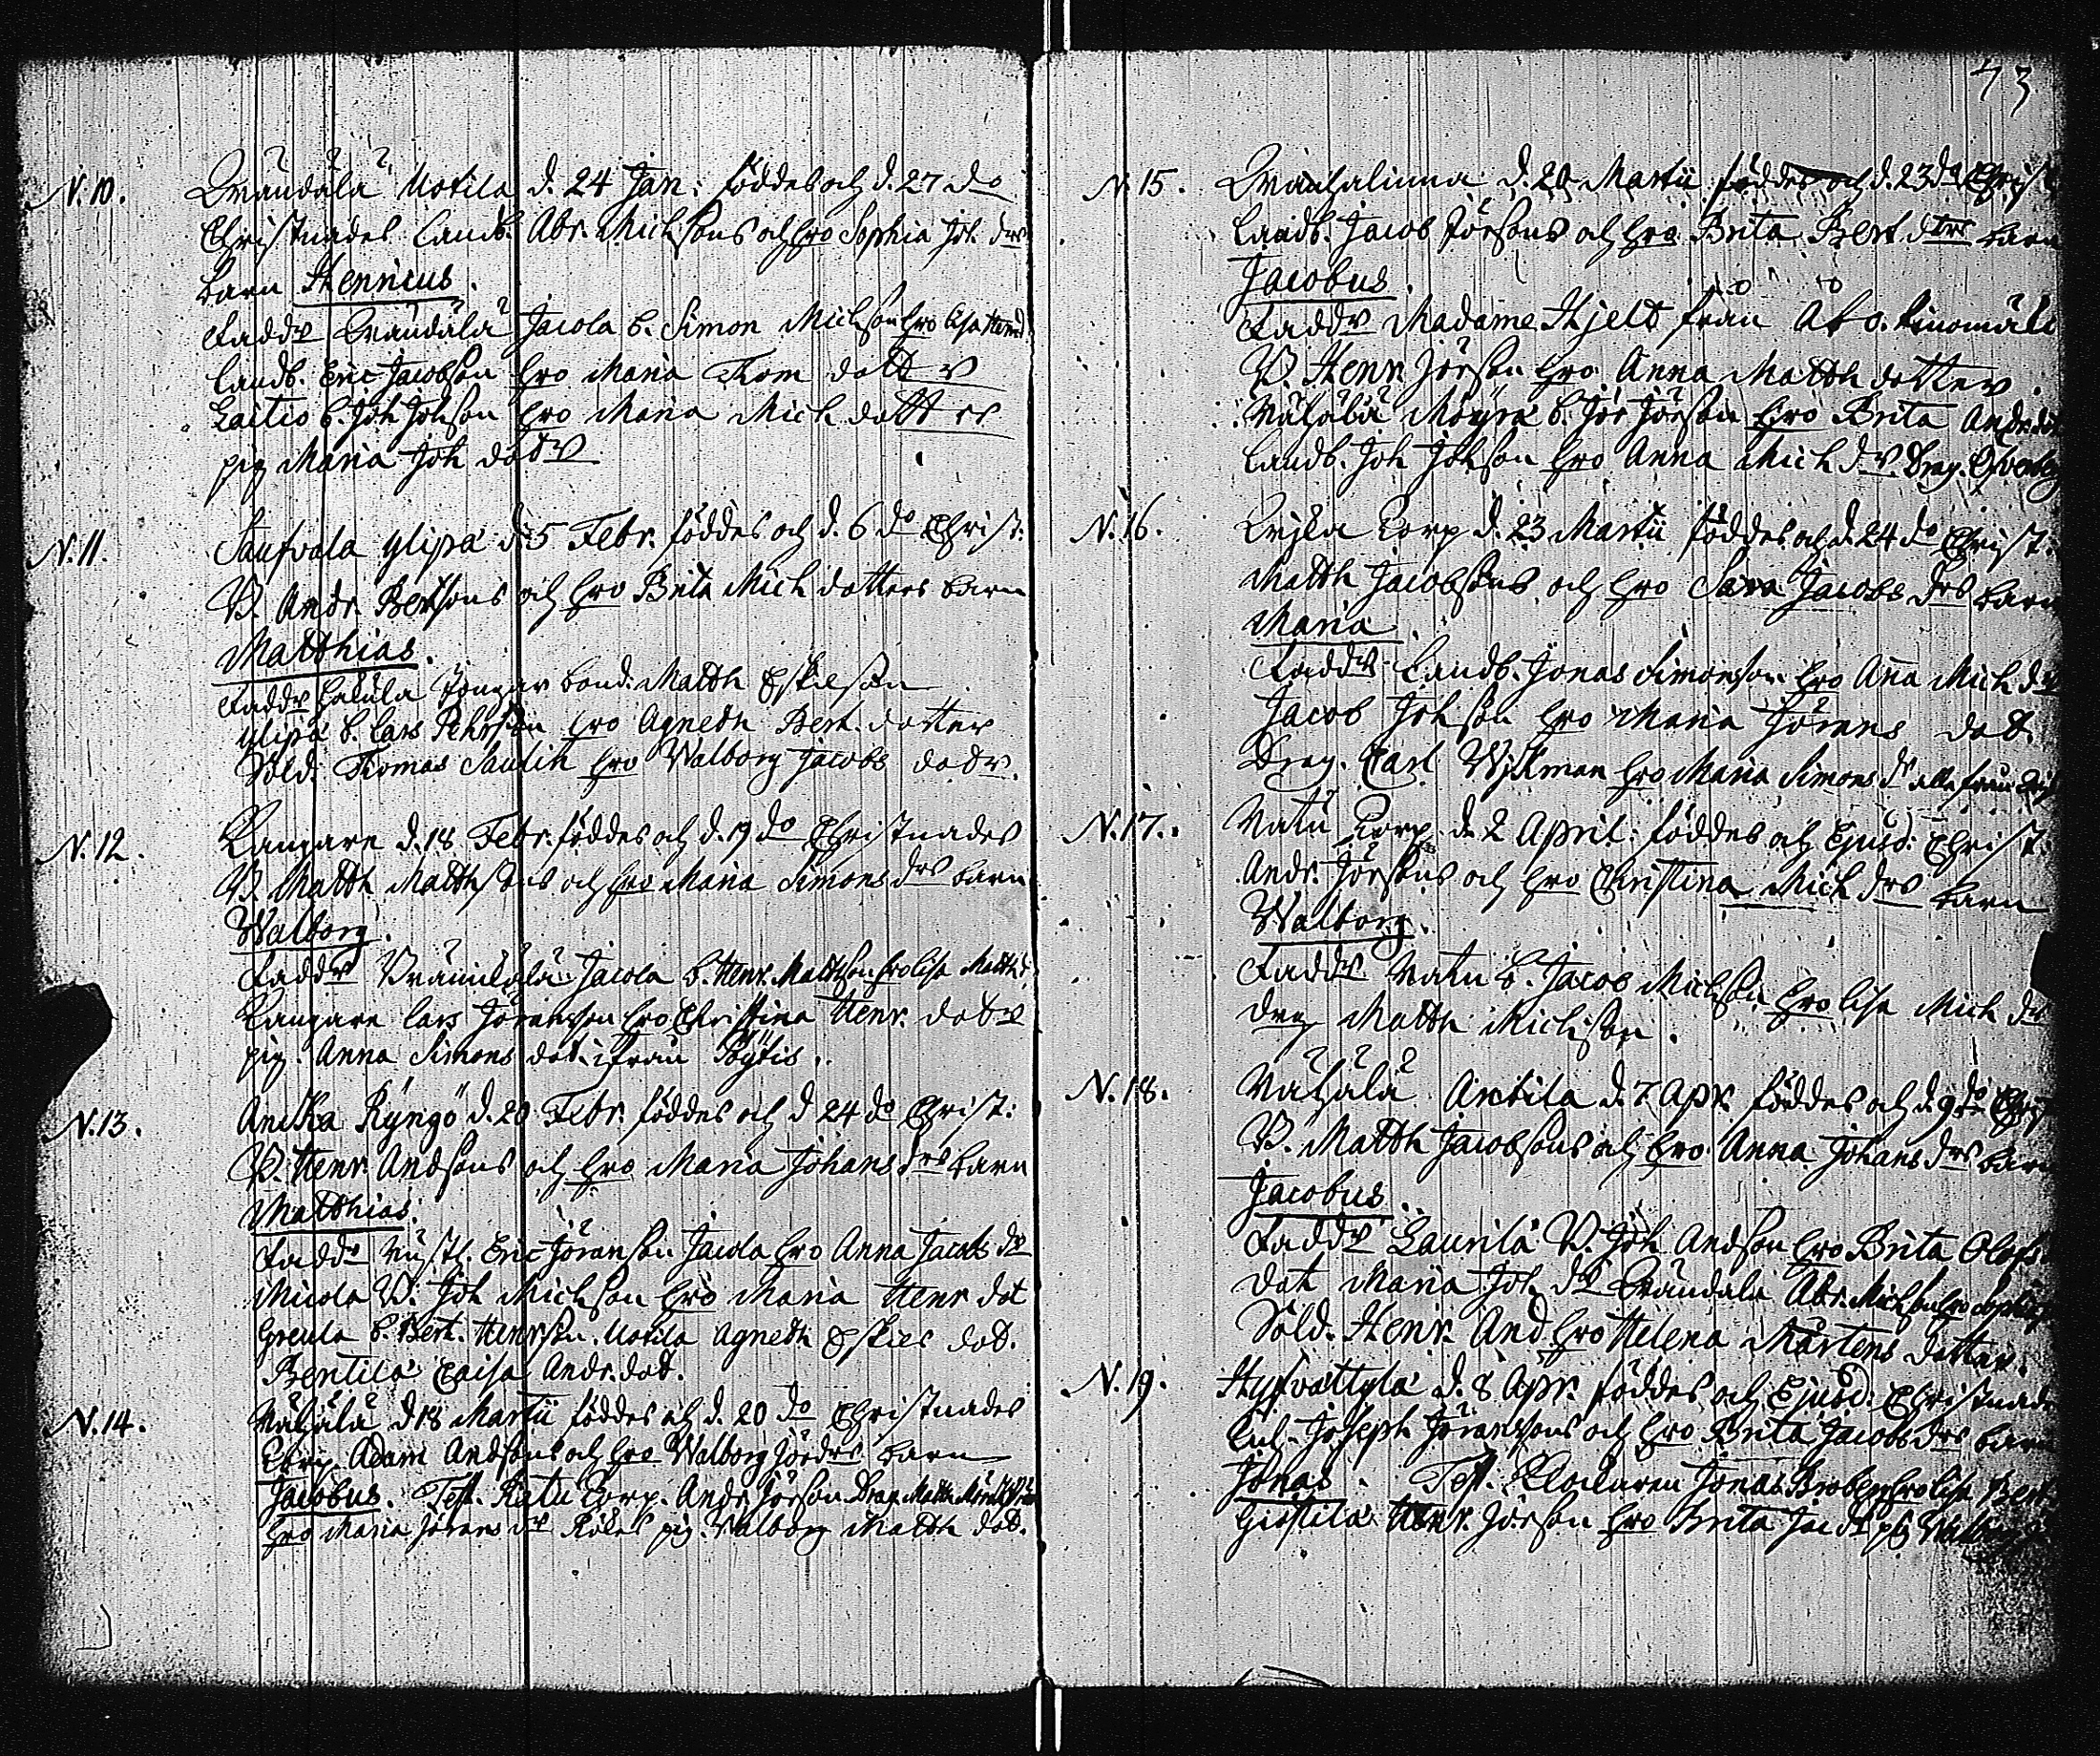 N. 10. Kräudälä Uotila d. 24 Jan: föddes och d. 27 do
Christnades Landb. Abr. Michsons och Hro Sophia Joh. drs
barn Hennicus.
Faddr Jacola b. Simon Michson Hro Lisa
Landb. Eric Jacobson Hro Maria Thom dott r
Laitio b. Joh Johson Hro Maria Mich dott rs
pig Maria Joh dotr
N. 11. Saufvola ylipä d. 5 Febr. föddes och d. 6 do Christ:
B. Andr. Bertsons och Hro Brita Mich dotters barn
Matthias.
Faddr bond. Matth Eskelson
ylipä b. Lars Pehrson Hro Agneth Bert. dotter
Sold. Thomas Hro Walborg Jacobs dodr.
N. 12. Kangare d. 18 Febr. föddes och d. 19 do Christnades
B. Matth Matthsons och Hro Maria Simons drs barn
Walborg.
Faddr Jacola b. Henr. Mattson Hro Lisa Matth
Kangare Lars Jöransson Hro Christina Henr. dotr
pig. Anna Simons dot. ifrån Pöytis.
N. 13. Antka Ryngö d. 20 Febr. föddes och d 24 do Christ:
B. Henr. Andsons och Hro Maria Johans drs barn
Matthias.
Faddr Eric Jöranson Jacola Hro Anna Jacobs dr
Micola B. Joh Michson Hro Maria Henr dot
Greula b. Bert. Henrson. Uotila Agneth Eskels dot.
Bentilä Caisa Andr. dot.
N. 14. Mähälä d 18 Martii föddes och d. 20 do Christnades
Adam Andsons och Hro Walborg Jör drs barn
Jacobus. Test. Natu Torp. Andr. Jörson Drag. Matth
Hro Maria Jörans dr pig. Walborg Matth dot.
73
N. 15. d. 20 Martii föddes och d. 23 do Christ
Landb. Jacob Jörsons och Hro Brita Bert. dtrs barn
Jacobus.
Faddr Madame Hjelt från Åbo.
B. Henr Jörson Hro Anna Matth dotter.
Mähälä Möyrä b. Jör Jörson Hro Brita Andr. dot
Landb. Joh Johson Hro Anna Mich dr. Drag.
N. 16. Torp d. 23 Martii föddes och d. 24 do Christ.
Matth Jacobsons och Hro Sara Jacobs drs barn
Maria.
Faddr Landb. Jonas Simonson Hro Ana Mich dr
Jacob Johson Hro Maria Jörans dot.
Drag. Carl Wikman Hro Maria Simons dr alla från
N. 17. Natu Torp d. 2 April: föddes och Ejusd: Christ.
Andr. Jörsons och Hro Christina Mich drs barn
Walborg.
Faddr Natu b. Jacob Michson Hro Lisa Mich dr
drag Matth Michson.
N. 18. Mähälä Anttila d. 7 Apr. föddes och d. 9 do Chris
B. Matth Jacobsons och Hro Anna Johans drs barn
Jacobus.
Faddr Laurila B. Joh Andson Hro Brita Olofs
dot Maria Joh. dr Abr. Michson Hro Sophia
Sold. Henr. And Hro Helena Mårtens dotter.
N. 19. Hyfvättylä d. 8 Apr. föddes och Ejusd: Christnade
Joseph Jöranssons och Hro Brita Jacobs drs barn
Jonas. Test. Klockaren Jonas Broberg Hro Lisa Bert.
Henr. Jörson Hro Brita Jac dr pig